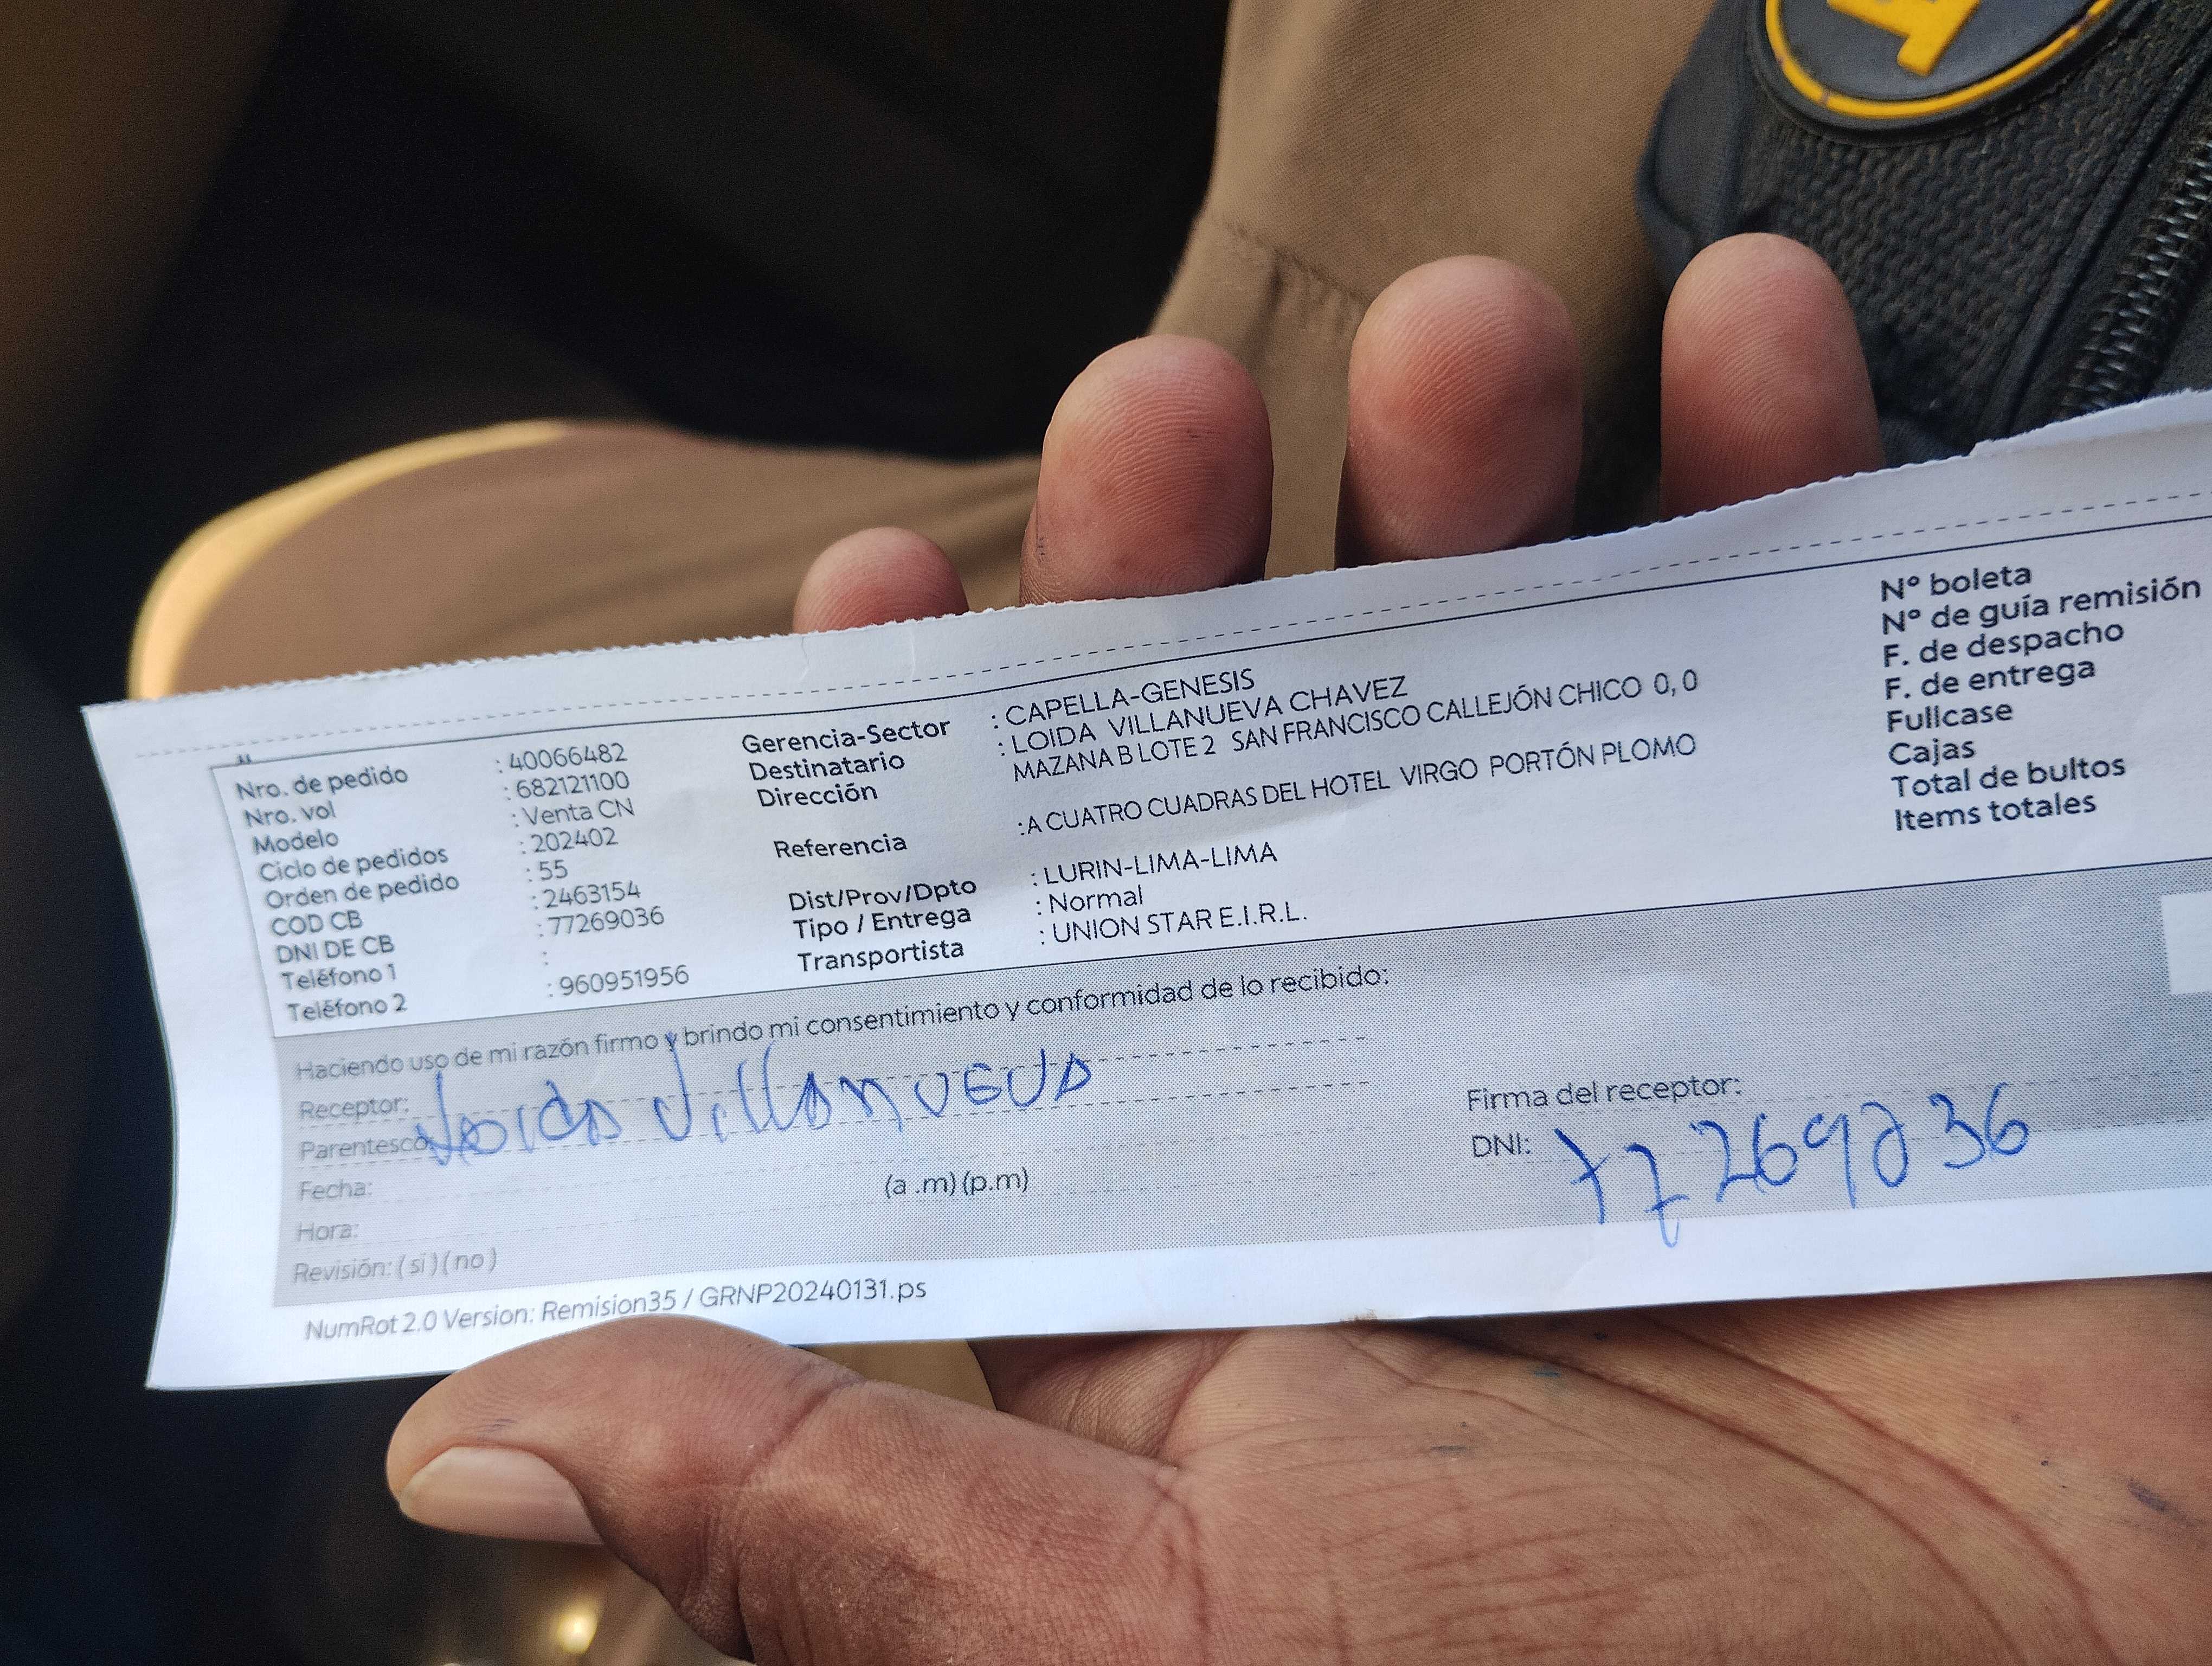 Nro. de pedido : 40066482
Nro. vol : 682121100
Modelo : Venta CN
Ciclo de pedidos : 202402
Orden de pedido : 55
COD CB : 2463154
DNI DE CB : 77269036
Teléfono 1 :
Teléfono 2 : 960951956
Gerencia-Sector : CAPELLA-GENESIS
Destinatario : LOIDA VILLANUEVA CHAVEZ
Dirección MAZANA B LOTE 2 SAN FRANCISCO CALLEJÓN CHICO 0, 0
Referencia : A CUATRO CUADRAS DEL HOTEL VIRGO PORTÓN PLOMO
Dist/Prov/Dpto : LURIN-LIMA-LIMA
Tipo / Entrega : Normal
Transportista : UNION STAR E.I.R.L.
Nº boleta
Nº de guía remisión
F. de despacho
F. de entrega
Fullcase
Cajas
Total de bultos
Items totales
Haciendo uso de mi razón firmo y brindo mi consentimiento y conformidad de lo recibido:
Receptor: Loida Villanueva
Parentesco
Fecha:
Hora: (a .m) (p.m)
Revisión: ( si ) ( no )
Firma del receptor:
DNI: 77269036
NumRot 2.0 Version: Remision35 / GRNP20240131.ps